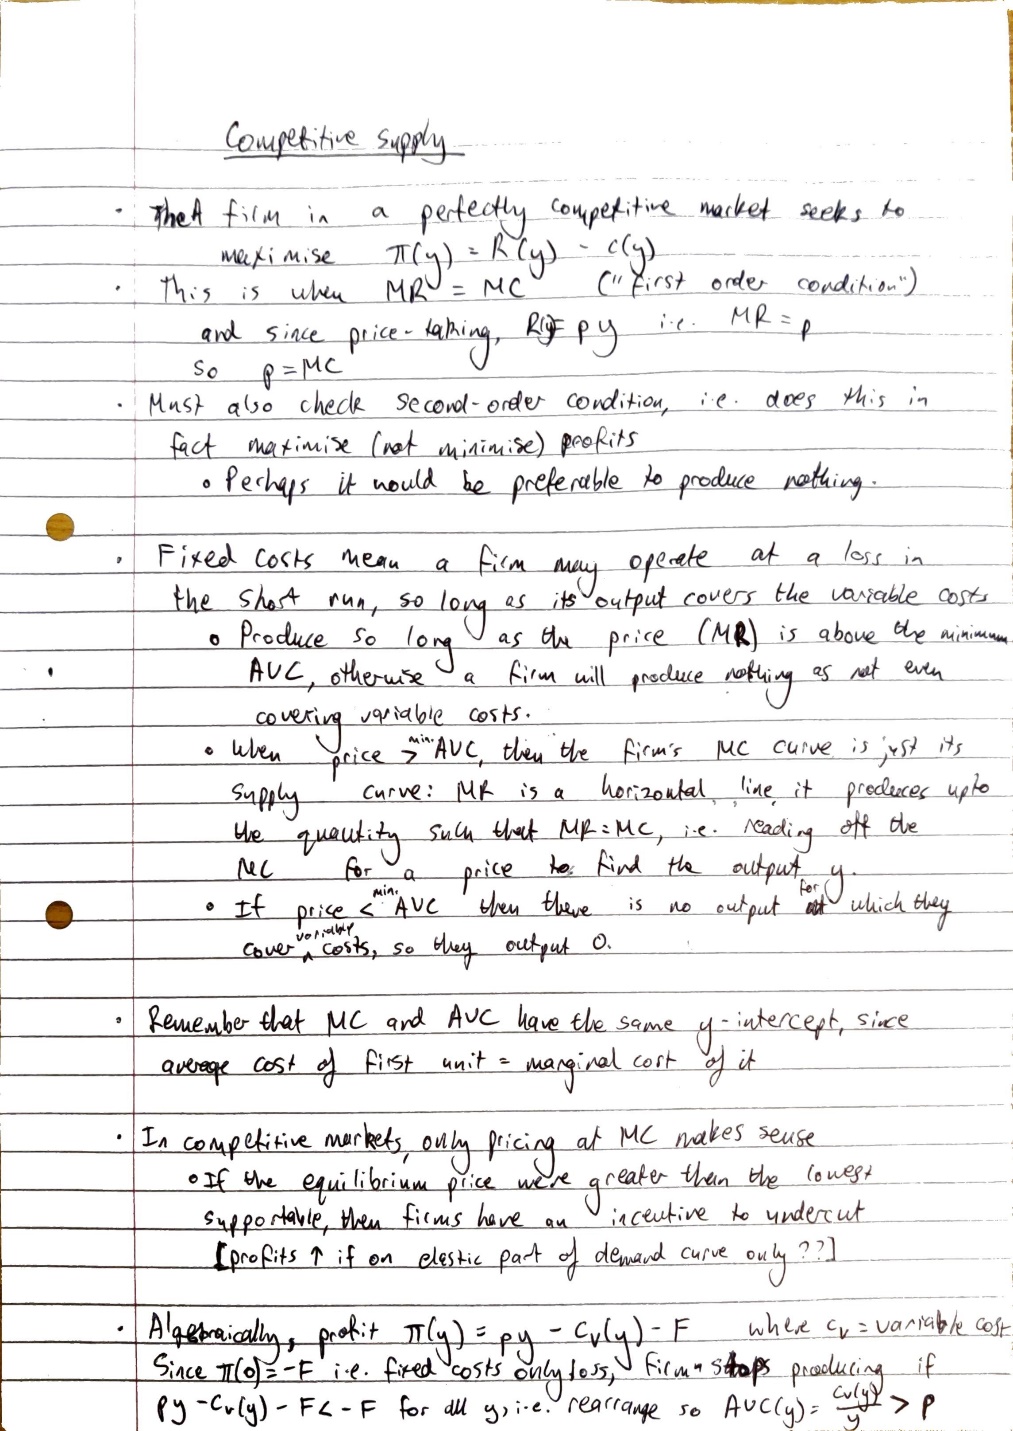 Competitive supply
· The A firm in a perfectly competitive market seeks to
maximise π(y) = R(y) - c(y)
· This is when MR = MC ("first order condition")
and since price-taking, R(y)= py i.e. MR = p
so p = MC
· Must also check second-order condition, i.e. does this in
fact maximise (not minimise) profits
∘ Perhaps it would be preferable to produce nothing.
· Fixed costs mean a firm may operate at a loss in
the short run, so long as its output covers the variable costs
∘ Produce so long as the price (MR) is above the minimum
AVC, otherwise a firm will produce nothing as not even
covering variable costs.
∘ When price > min. AVC, then the firm's MC curve is just its
supply curve: MR is a horizontal line, it produces upto
the quantity such that MR = MC, i.e. reading off the
MC for a price to find the output y.
∘ If price < min. AVC then there is no output for which they
cover variable costs, so they output 0.
· Remember that MC and AVC have the same y-intercept, since
average cost of first unit = marginal cost of it
· In competitive markets, only pricing at MC makes sense
∘ If the equilibrium price were greater than the lowest
supportable, then firms have an incentive to undercut
[profits ↑ if on elastic part of demand curve only ??]
· Algebraically, profit π(y) = py - Cv(y) - F where cv = variable cost
Since π(0) = -F i.e. fixed costs only loss, firm stops producing if
py - Cv(y) - F < -F for all y, i.e. rearrange so AVC(y) = Cv(y)/y > p